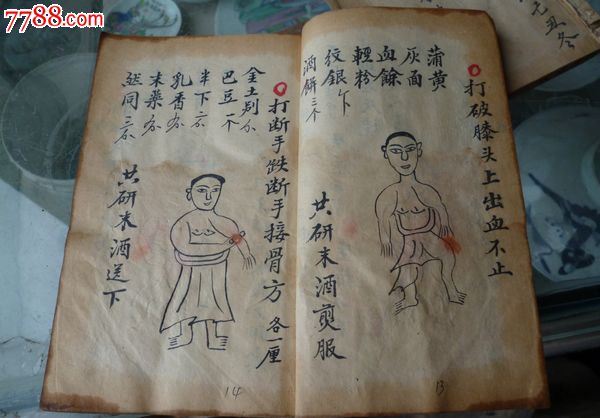 7788.com
打破膝头上出血不止
蒲黄
灰面
血餘
輕粉
纹銀
酒餅 三个
共研末酒煎服
13
打断手跌断手接骨方 各一厘
金土别
巴豆 一个
半下
乳香
末藥
然同
共研末酒送下
14
元丑冬